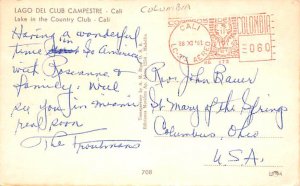 LAGO DEL CLUB CAMPESTRE - Cali
Lake in the Country Club - Cali
COLUMBIA
CALI
COLOMBIA
060
Having a wonderful
time in So America
with Roseanne &
family. Will
see you in Miami
real soon
The Troutmans
Rev. John Bauer
St. Mary of the Springs
Columbus, Ohio
U.S.A.
708